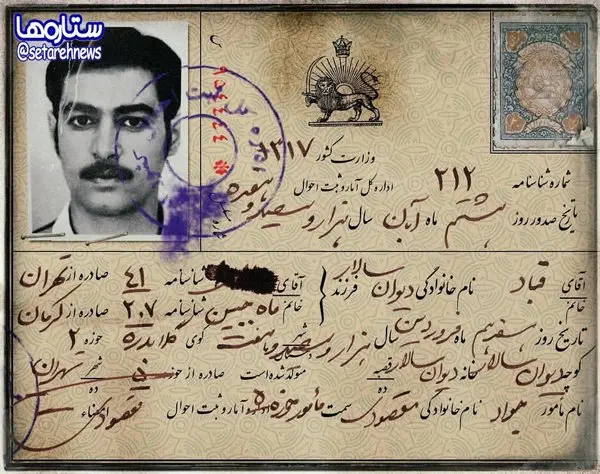 ستاره‌ها
@setarehnews
وزارت کشور ۱۳۱۷
اداره کل آمار و ثبت احوال
شماره شناسنامه ۲۱۲
تاریخ صدور روز هشتم ماه آبان سال هزار و سیصد و هفده
آقای قباد نام خانوادگی دیوان سالار فرزند آقای شناسنامه ۴۱ صادره از تهران
خانم خانم ماه جبین شناسنامه ۲۰۷ صادره از کرمان
تاریخ روز ماه فروردین سال هزار و سیصد و هفت کوی گلابدره حوزه ۲
کوچه دیوان سالار خانه دیوان سالار قصبه متولد شده است صادره از حوزه شهر تهران
ده
نام مأمور جواد نام خانوادگی مقصودی سمت مأمور حوزه آمار و ثبت احوال امضاء مقصودی